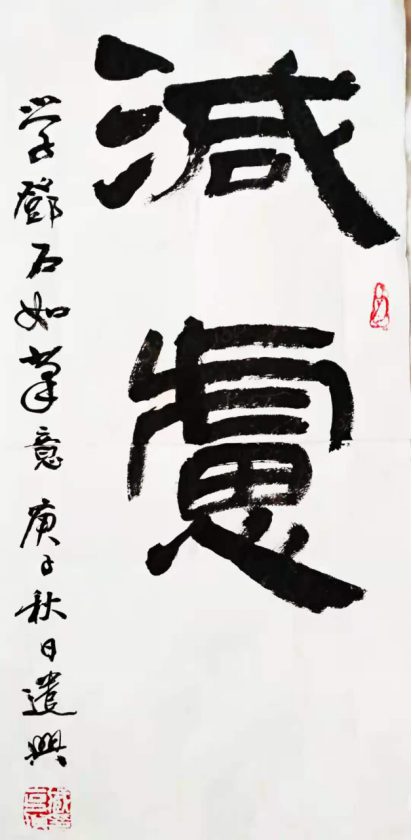 減慮
学鄧石如筆意庚子秋日遣興